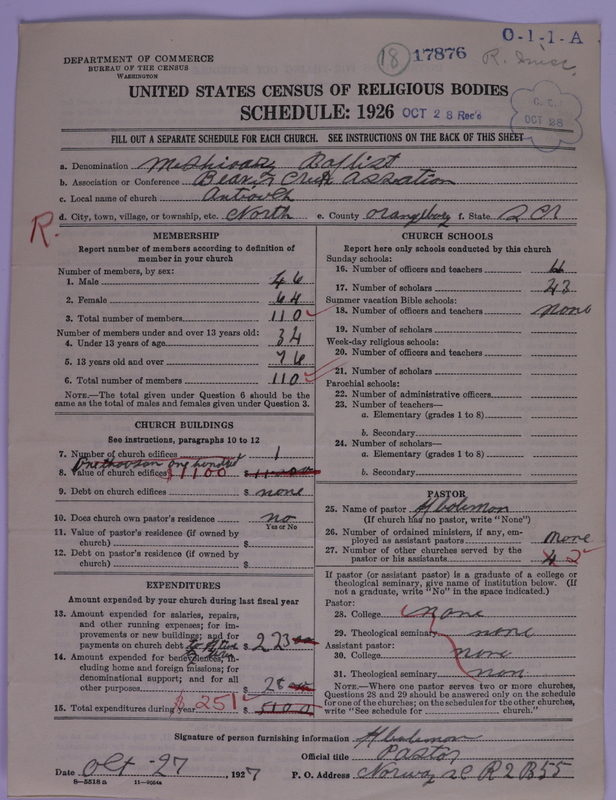 O-1-1-A
18 17876
DEPARTMENT OF COMMERCE
BUREAU OF THE CENSUS
WASHINGTON
UNITED STATES CENSUS OF RELIGIOUS BODIES
SCHEDULE: 1926 OCT 28 Rec'd
OCT 28
FILL OUT A SEPARATE SCHEDULE FOR EACH CHURCH. SEE INSTRUCTIONS ON THE BACK OF THIS SHEET
a. Denomination Baptist
b. Association or Conference
c. Local name of church Antioch
d. City, town, village, or township, etc. North e. County Orangeburg f. State
R.
MEMBERSHIP
Report number of members according to definition of
member in your church
Number of members, by sex:
1. Male 46
2. Female 64
3. Total number of members 110
Number of members under and over 13 years old:
4. Under 13 years of age 34
5. 13 years old and over 76
6. Total number of members 110
NOTE.—The total given under Question 6 should be the
same as the total of males and females given under Question 3.
CHURCH BUILDINGS
See instructions, paragraphs 10 to 12
7. Number of church edifices 1
8. Value of church edifices $1100 $
9. Debt on church edifices $ none
10. Does church own pastor's residence no
Yes or No
11. Value of pastor's residence (if owned by
church) $
12. Debt on pastor's residence (if owned by
church) $
EXPENDITURES
Amount expended by your church during last fiscal year
13. Amount expended for salaries, repairs,
and other running expenses; for im-
provements or new buildings; and for
payments on church debt $ 223
14. Amount expended for benevolences, in-
cluding home and foreign missions; for
denominational support; and for all
other purposes $ 28
15. Total expenditures during year $251 $
CHURCH SCHOOLS
Report here only schools conducted by this church
Sunday schools:
16. Number of officers and teachers
17. Number of scholars 43
Summer vacation Bible schools:
18. Number of officers and teachers none
19. Number of scholars
Week-day religious schools:
20. Number of officers and teachers
21. Number of scholars
Parochial schools:
22. Number of administrative officers
23. Number of teachers—
a. Elementary (grades 1 to 8)
b. Secondary
24. Number of scholars—
a. Elementary (grades 1 to 8)
b. Secondary
PASTOR
25. Name of pastor
(If church has no pastor, write "None")
26. Number of ordained ministers, if any, em-
ployed as assistant pastors none
27. Number of other churches served by the
pastor or his assistants 2
If pastor (or assistant pastor) is a graduate of a college or
theological seminary, give name of institution below. (If
not a graduate, write "No" in the space indicated.)
Pastor:
28. College none
29. Theological seminary none
Assistant pastor:
30. College none
31. Theological seminary non
NOTE.—Where one pastor serves two or more churches,
Questions 28 and 29 should be answered only on the schedule
for one of the churches; on the schedules for the other churches,
write "See schedule for church."
Signature of person furnishing information
Official title Pastor
Date Oct-27, 1927 P. O. Address Norway SC R2 B55
8—5518 a